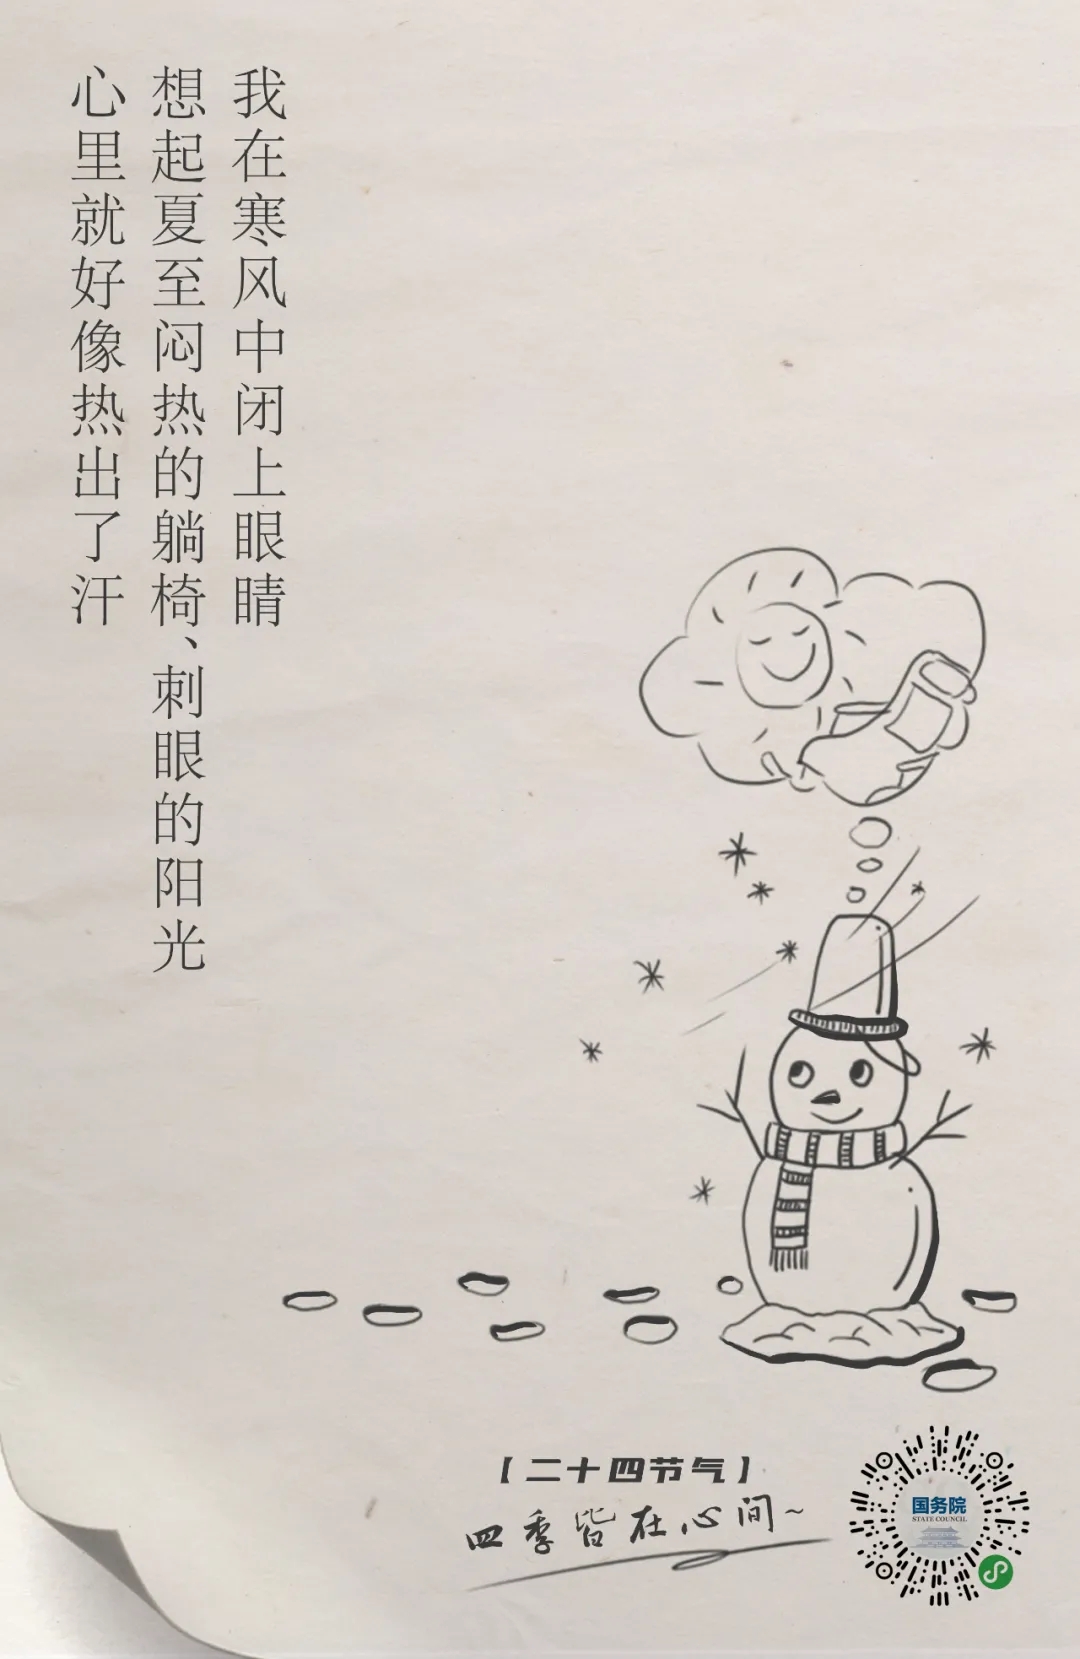 我在寒风中闭上眼睛
想起夏至闷热的躺椅、刺眼的阳光
心里就好像热出了汗
【二十四节气】
四季皆在心间~
国务院
STATE COUNCIL